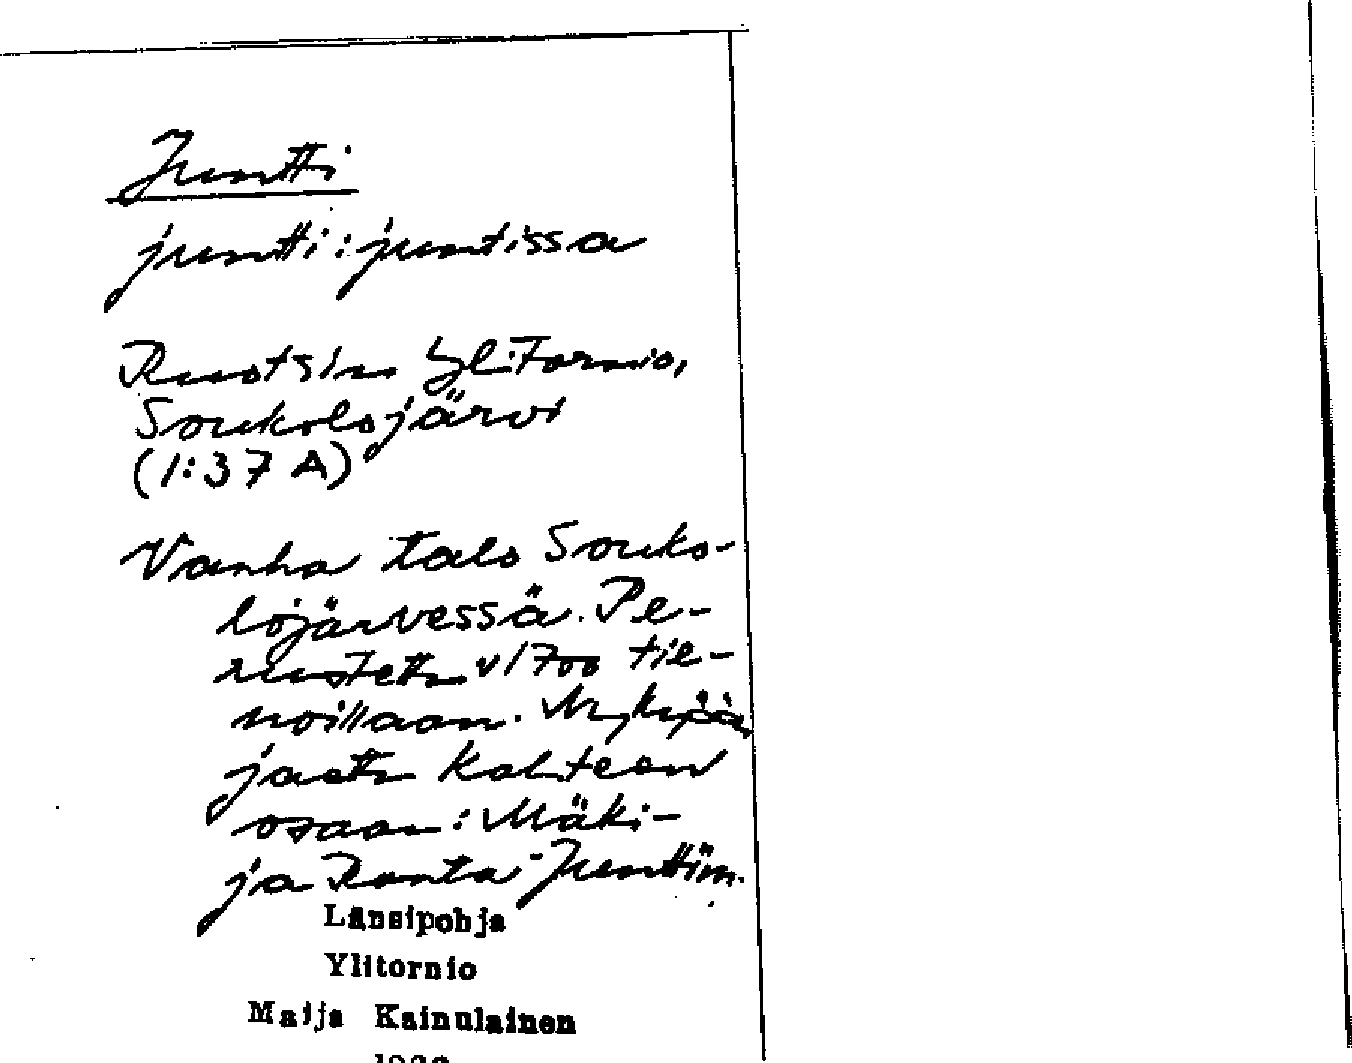 Juntti
juntti : juntissa
Ruotsin Ylitornio,
Soukolojärvi
(1:37 A)
Vanha talo Souko-
lojärvessä. Pe-
rustettu v 1700 tie-
noillaan. Nykyää
jaettu kahteen
osaan: Mäki-
ja Ranta-Junttiin.
Länsipohja
Ylitornio
Maija Kainulainen